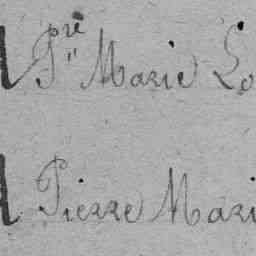 pre
P" Marie Lo
Pierre Mari